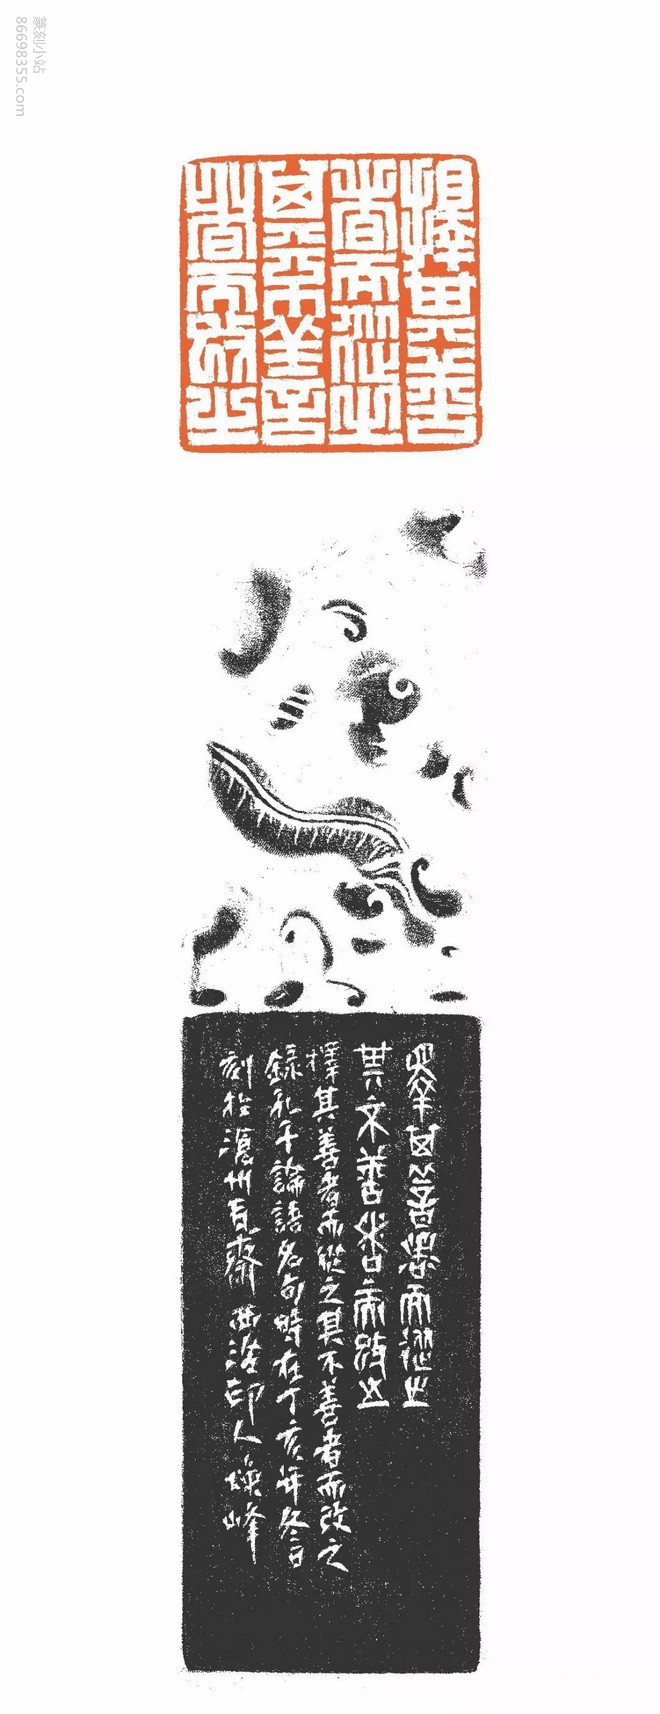 篆刻小站
86698355.com
擇其善
者而從之
其不善
者而改之
擇其善者而從之
其不善者而改之
擇其善者而從之其不善者而改之
錄孔子論語名句時在丁亥年冬日
刻於滬州百齋西洛印人煥峰